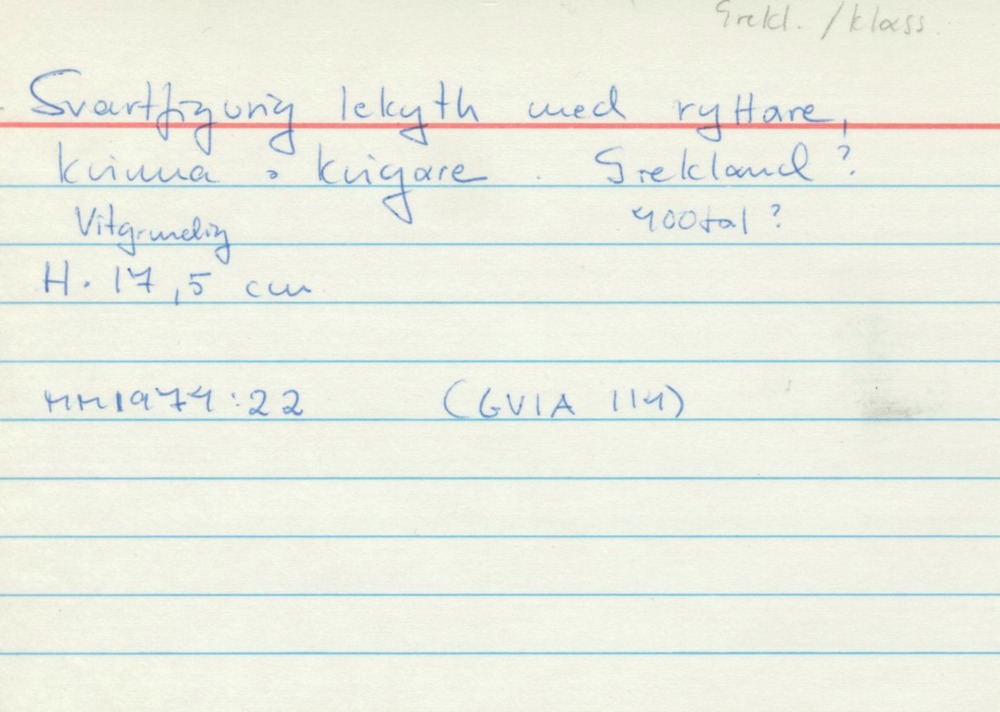 Grekl. /klass.
Svartfigurig lekyth med ryttare,
kvinna o krigare. Grekland?
Vitgrundig 400tal?
H. 17,5 cm
MM1974:22 (GVIA 114)